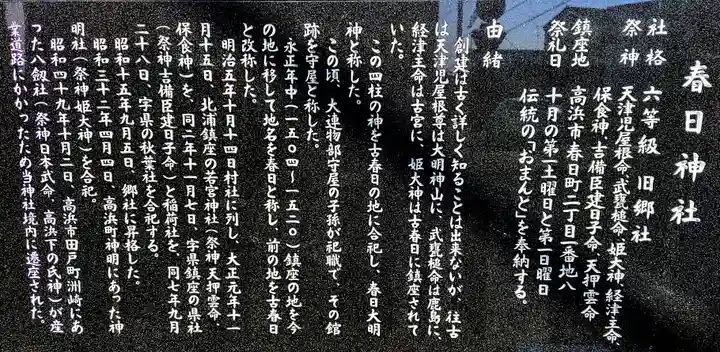 春日神社
社格　六等級　旧郷社
祭神　天津児屋根命、武甕槌命、姫大神、経津主命、
保食神、吉備臣建日子命、天押雲命
鎮座地　高浜市春日町二丁目一番地八
祭礼日　十月の第一土曜日と第一日曜日
伝統の「おまんと」を奉納する。
由緒
創建は古く詳しく知ることは出来ないが、往古
は天津児屋根尊は大明神山に、武甕槌命は鹿島に、
経津主命は古宮に、姫大神は古春日に鎮座されて
いた。
この四柱の神を古春日の地に合祀し、春日大明
神と称した。
この頃、大連物部守屋の子孫が祀職で、その館
跡を守屋と称した。
永正年中（一五〇四～一五二〇）鎮座の地を今
の地に移して地名を春日と称し、前の地を古春日
と改称した。
明治五年十月十四日村社に列し、大正元年十一
月十五日、北浦鎮座の若宮神社（祭神天押雲命、
保食神）を、同二年十一月七日、字県鎮座の県社
（祭神吉備臣建日子命）と稲荷社を、同七年九月
二十八日、字県の秋葉社を合祀する。
昭和十五年九月五日、郷社に昇格した。
昭和三十二年四月四日、高浜町神明にあった神
明社（祭神姫大神）を合祀。
昭和四十九年十月二日、高浜市田戸町洲崎にあ
った八剱社（祭神日本武命、高浜下の氏神）が産
業道路にかかったため当神社境内に遷座された。